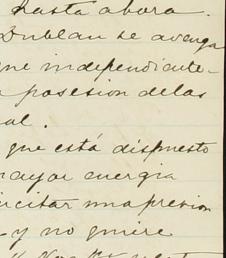 hasta ahora.
Dublan se avenga
que independiente-
a posesion de las
al.
que está dispuesto
mayor energia
icitar una presion
y no quiere